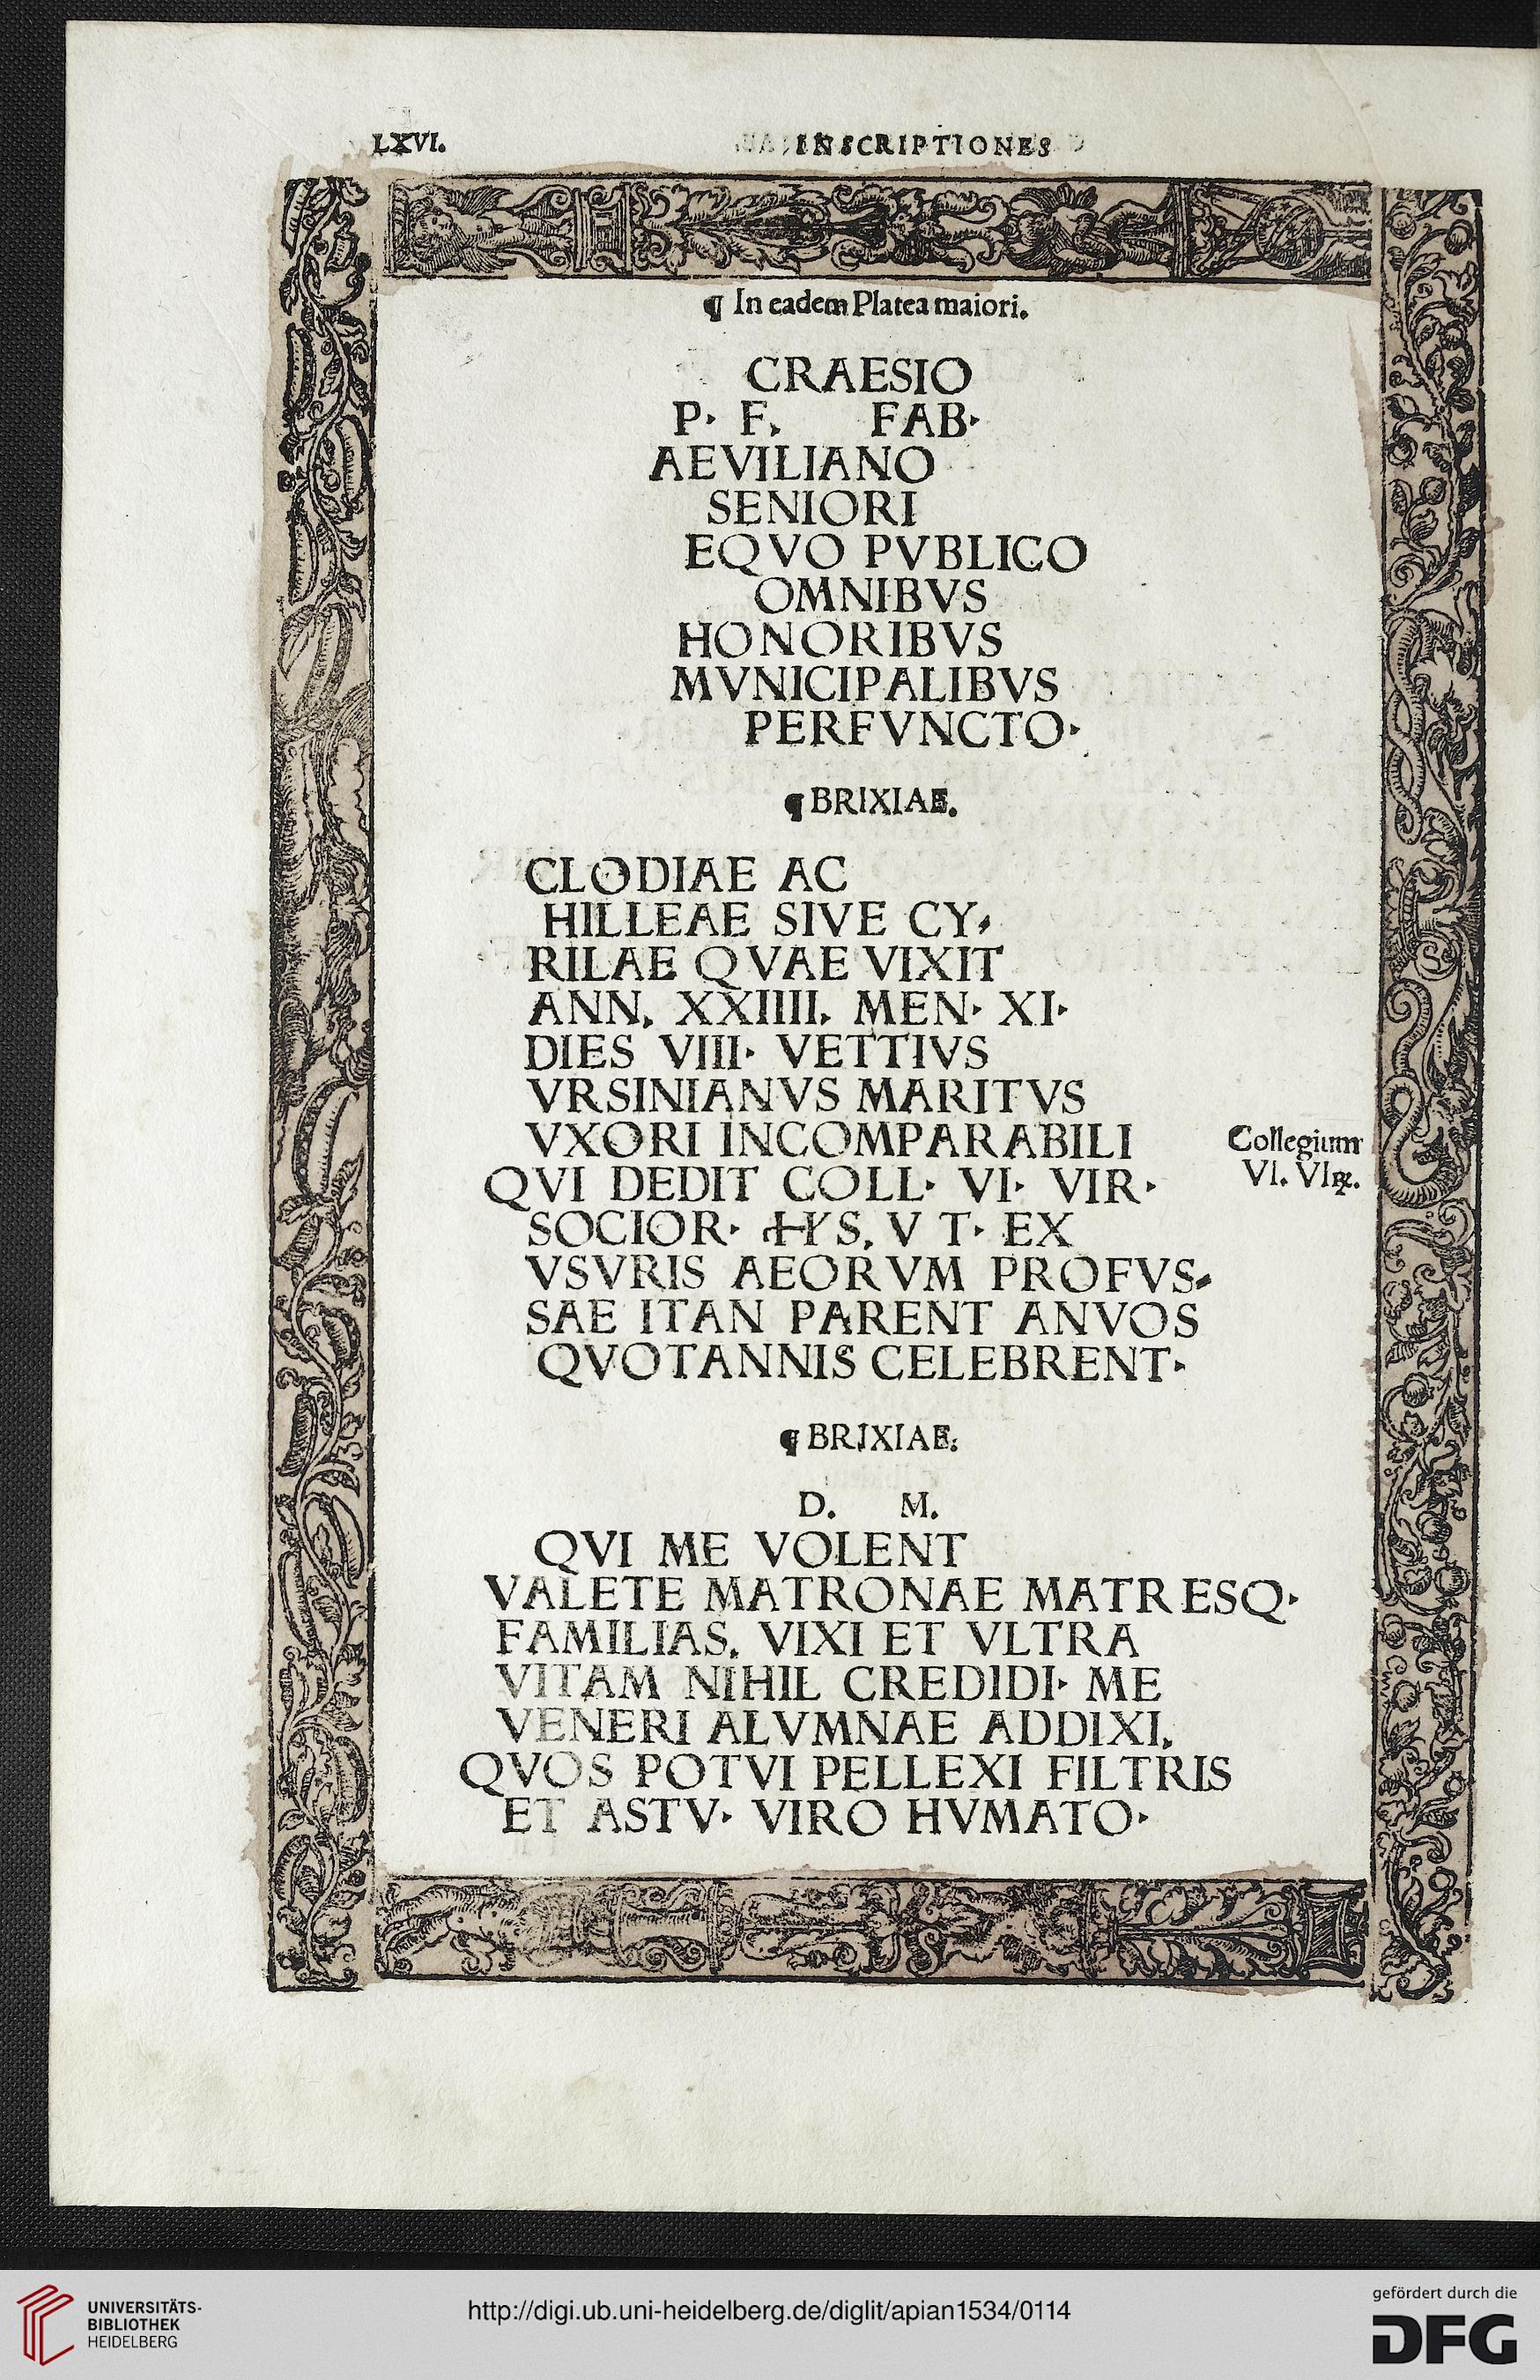 LXVI. INSCRIPTIONES
¶ In eadem Platea maiori.
CRAESIO
P· F. FAB·
AEVILIANO
SENIORI
EQVO PVBLICO
OMNIBVS
HONORIBVS
MVNICIPALIBVS
PERFVNCTO·
¶ BRIXIAE.
CLODIAE AC
HILLEAE SIVE CY⸗
RILAE QVAE VIXIT
ANN. XXIIIII. MEN· XI·
DIES VIIII· VETTIVS
VRSINIANVS MARITVS
VXORI INCOMPARABILI
QVI DEDIT COLL· VI· VIR·
SOCIOR· V T· EX
VSVRIS AEORVM PROFVS⸗
SAE ITAN PARENT ANVOS
QVOTANNIS CELEBRENT·
Collegium
VI. VIꝝ.
¶ BRIXIAE.
D. M.
QVI ME VOLENT
VALETE MATRONAE MATRESQ·
FAMILIAS. VIXI ET VLTRA
VITAM NIHIL CREDIDI· ME
VENERI ALVMNAE ADDIXI.
QVOS POTVI PELLEXI FILTRIS
ET ASTV· VIRO HVMATO·
UNIVERSITÄTS-
BIBLIOTHEK
HEIDELBERG
http://digi.ub.uni-heidelberg.de/diglit/apian1534/0114
gefördert durch die
DFG